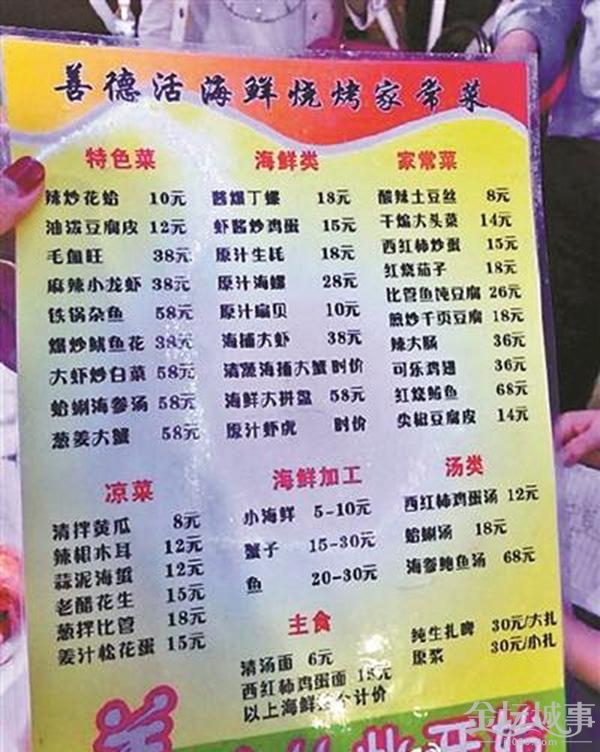 善德活海鲜烧烤家常菜
特色菜
辣炒花蛤 10元
油泼豆腐皮 12元
毛血旺 38元
麻辣小龙虾 38元
铁锅杂鱼 58元
爆炒鱿鱼花 38元
大虾炒白菜 58元
蛤蜊海参汤 58元
葱姜大蟹 58元
海鲜类
酱爆丁螺 18元
虾酱炒鸡蛋 15元
原汁生耗 18元
原汁海螺 28元
原汁扇贝 10元
海捕大虾 38元
清蒸海捕大蟹 时价
海鲜大拼盘 58元
原汁虾虎 时价
家常菜
酸辣土豆丝 8元
干煸大头菜 14元
西红柿炒蛋 15元
红烧茄子 18元
比管鱼炖豆腐 26元
煎炒千页豆腐 18元
辣大肠 36元
可乐鸡翅 36元
红烧鲅鱼 68元
尖椒豆腐皮 14元
凉菜
清拌黄瓜 8元
辣椒木耳 12元
蒜泥海蜇 12元
老醋花生 15元
葱拌比管 18元
姜汁松花蛋 15元
海鲜加工
小海鲜 5-10元
蟹子 15-30元
鱼 20-30元
汤类
西红柿鸡蛋汤 12元
蛤蜊汤 18元
海参鲍鱼汤 68元
主食
清汤面 6元
西红柿鸡蛋面 15元
以上海鲜 个计价
纯生扎啤 30元/大扎
原浆 30元/小扎
金坛城事